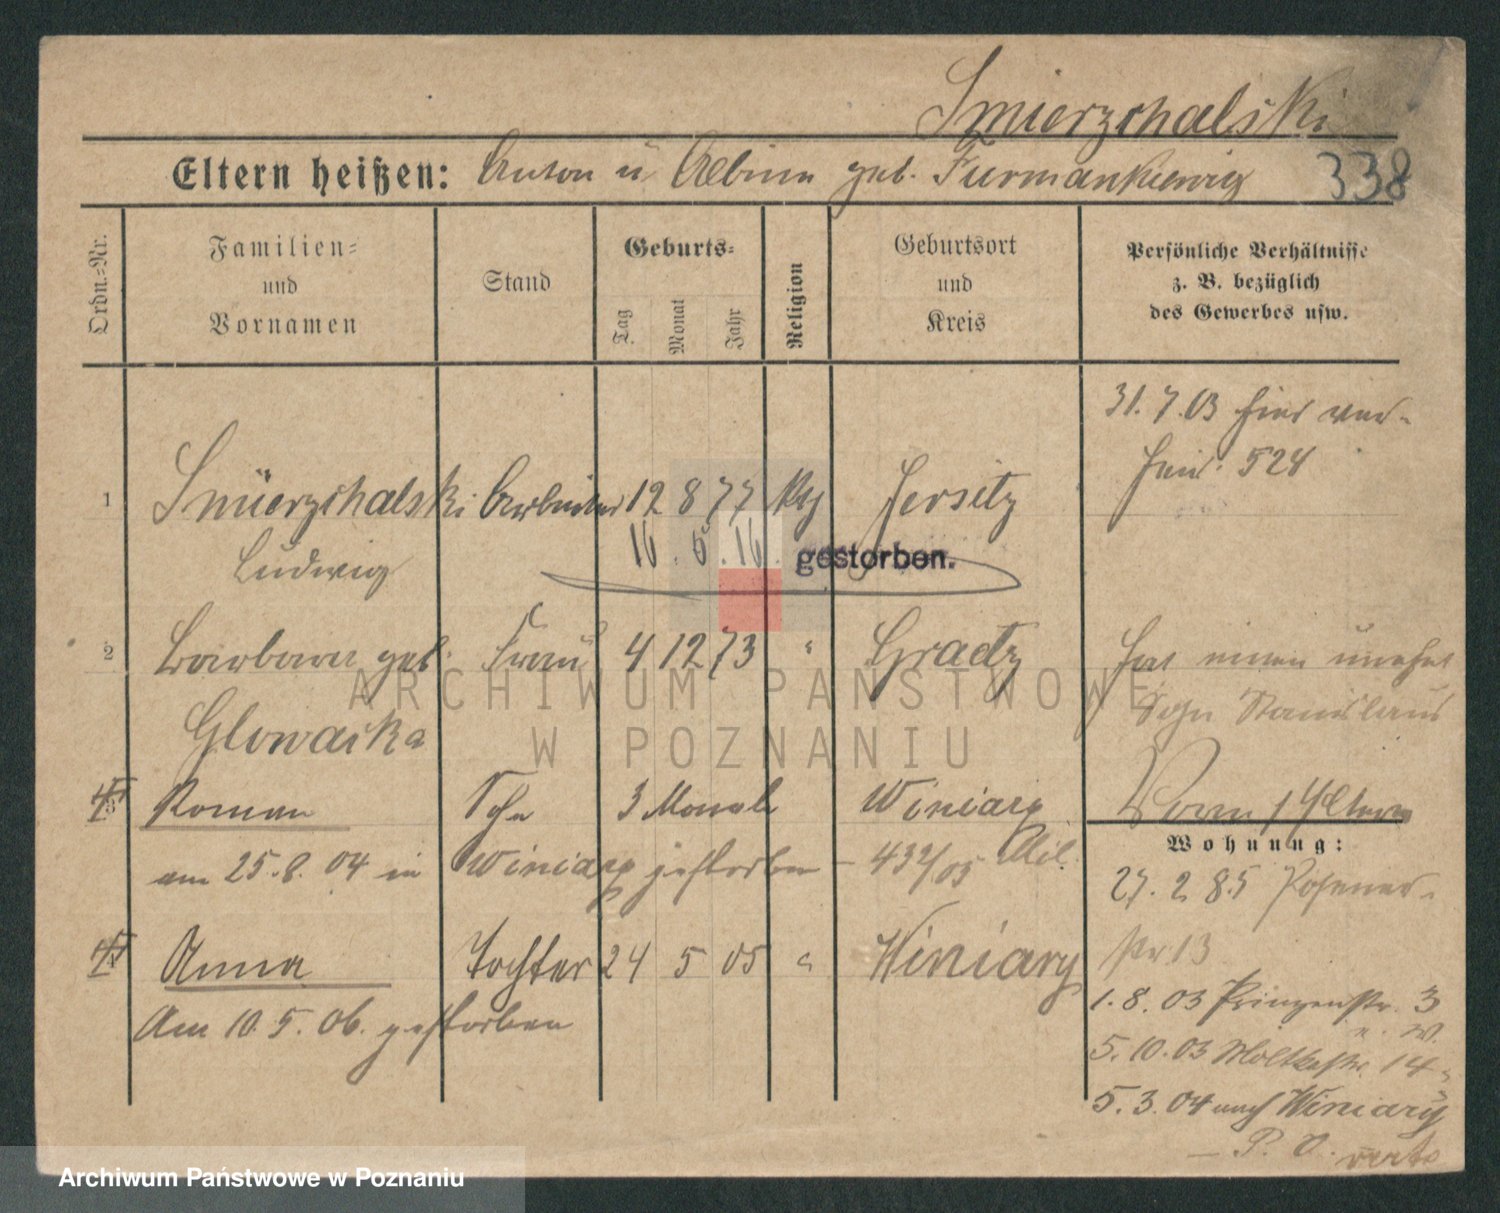 Smierzchalski
Eltern heißen: Anton u. Albina geb. Furmankiewicz 338
Ordn.-Nr.
Familien-
und
Vornamen
Stand
Geburts-
Tag
Monat
Jahr
Religion
Geburtsort
und
Kreis
Persönliche Verhältnisse
z. B. bezüglich
des Gewerbes usw.
31. 7. 03 hier ver-
heir. 524
1 Smierzchalski Arbeiter 12 8 77 kth Jersitz
Ludwig
16. 5. 16. gestorben.
2 Barbara geb. Frau 4 12 73 " Gradtz
Glowacka
hat einen unehel
Sohn Stanislaus
3 Roman Sohn 3 Monate Winiary
am 25. 8. 04 in Winiary gestorben – 432/05 Mil.
4 Anna Tochter 24 5 05 " Winiary
Am 10. 5. 06. gestorben
Wohnung:
27. 2 85 Posener-
str 13
1. 8. 03 Prinzenstr. 3
5. 10. 03 Moltkestr. 14
5. 3. 04 nach Winiary
– P. O. verte
ARCHIWUM PAŃSTWOWE
W POZNANIU
Archiwum Państwowe w Poznaniu